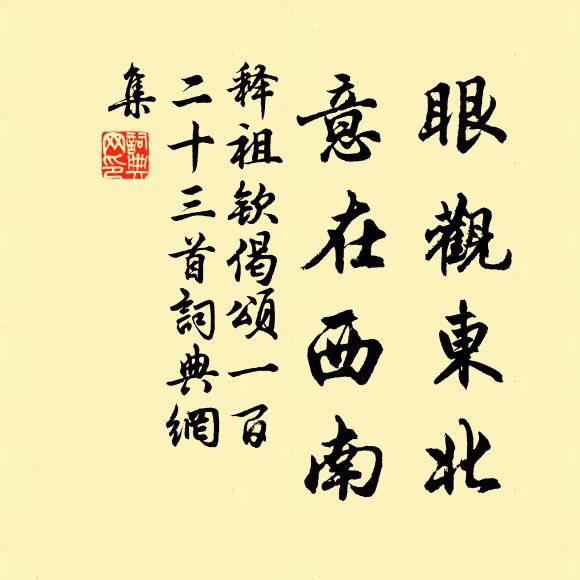 眼觀東北
意在西南
释祖钦偈頌一百
二十三首詞典網
集
詞典網印